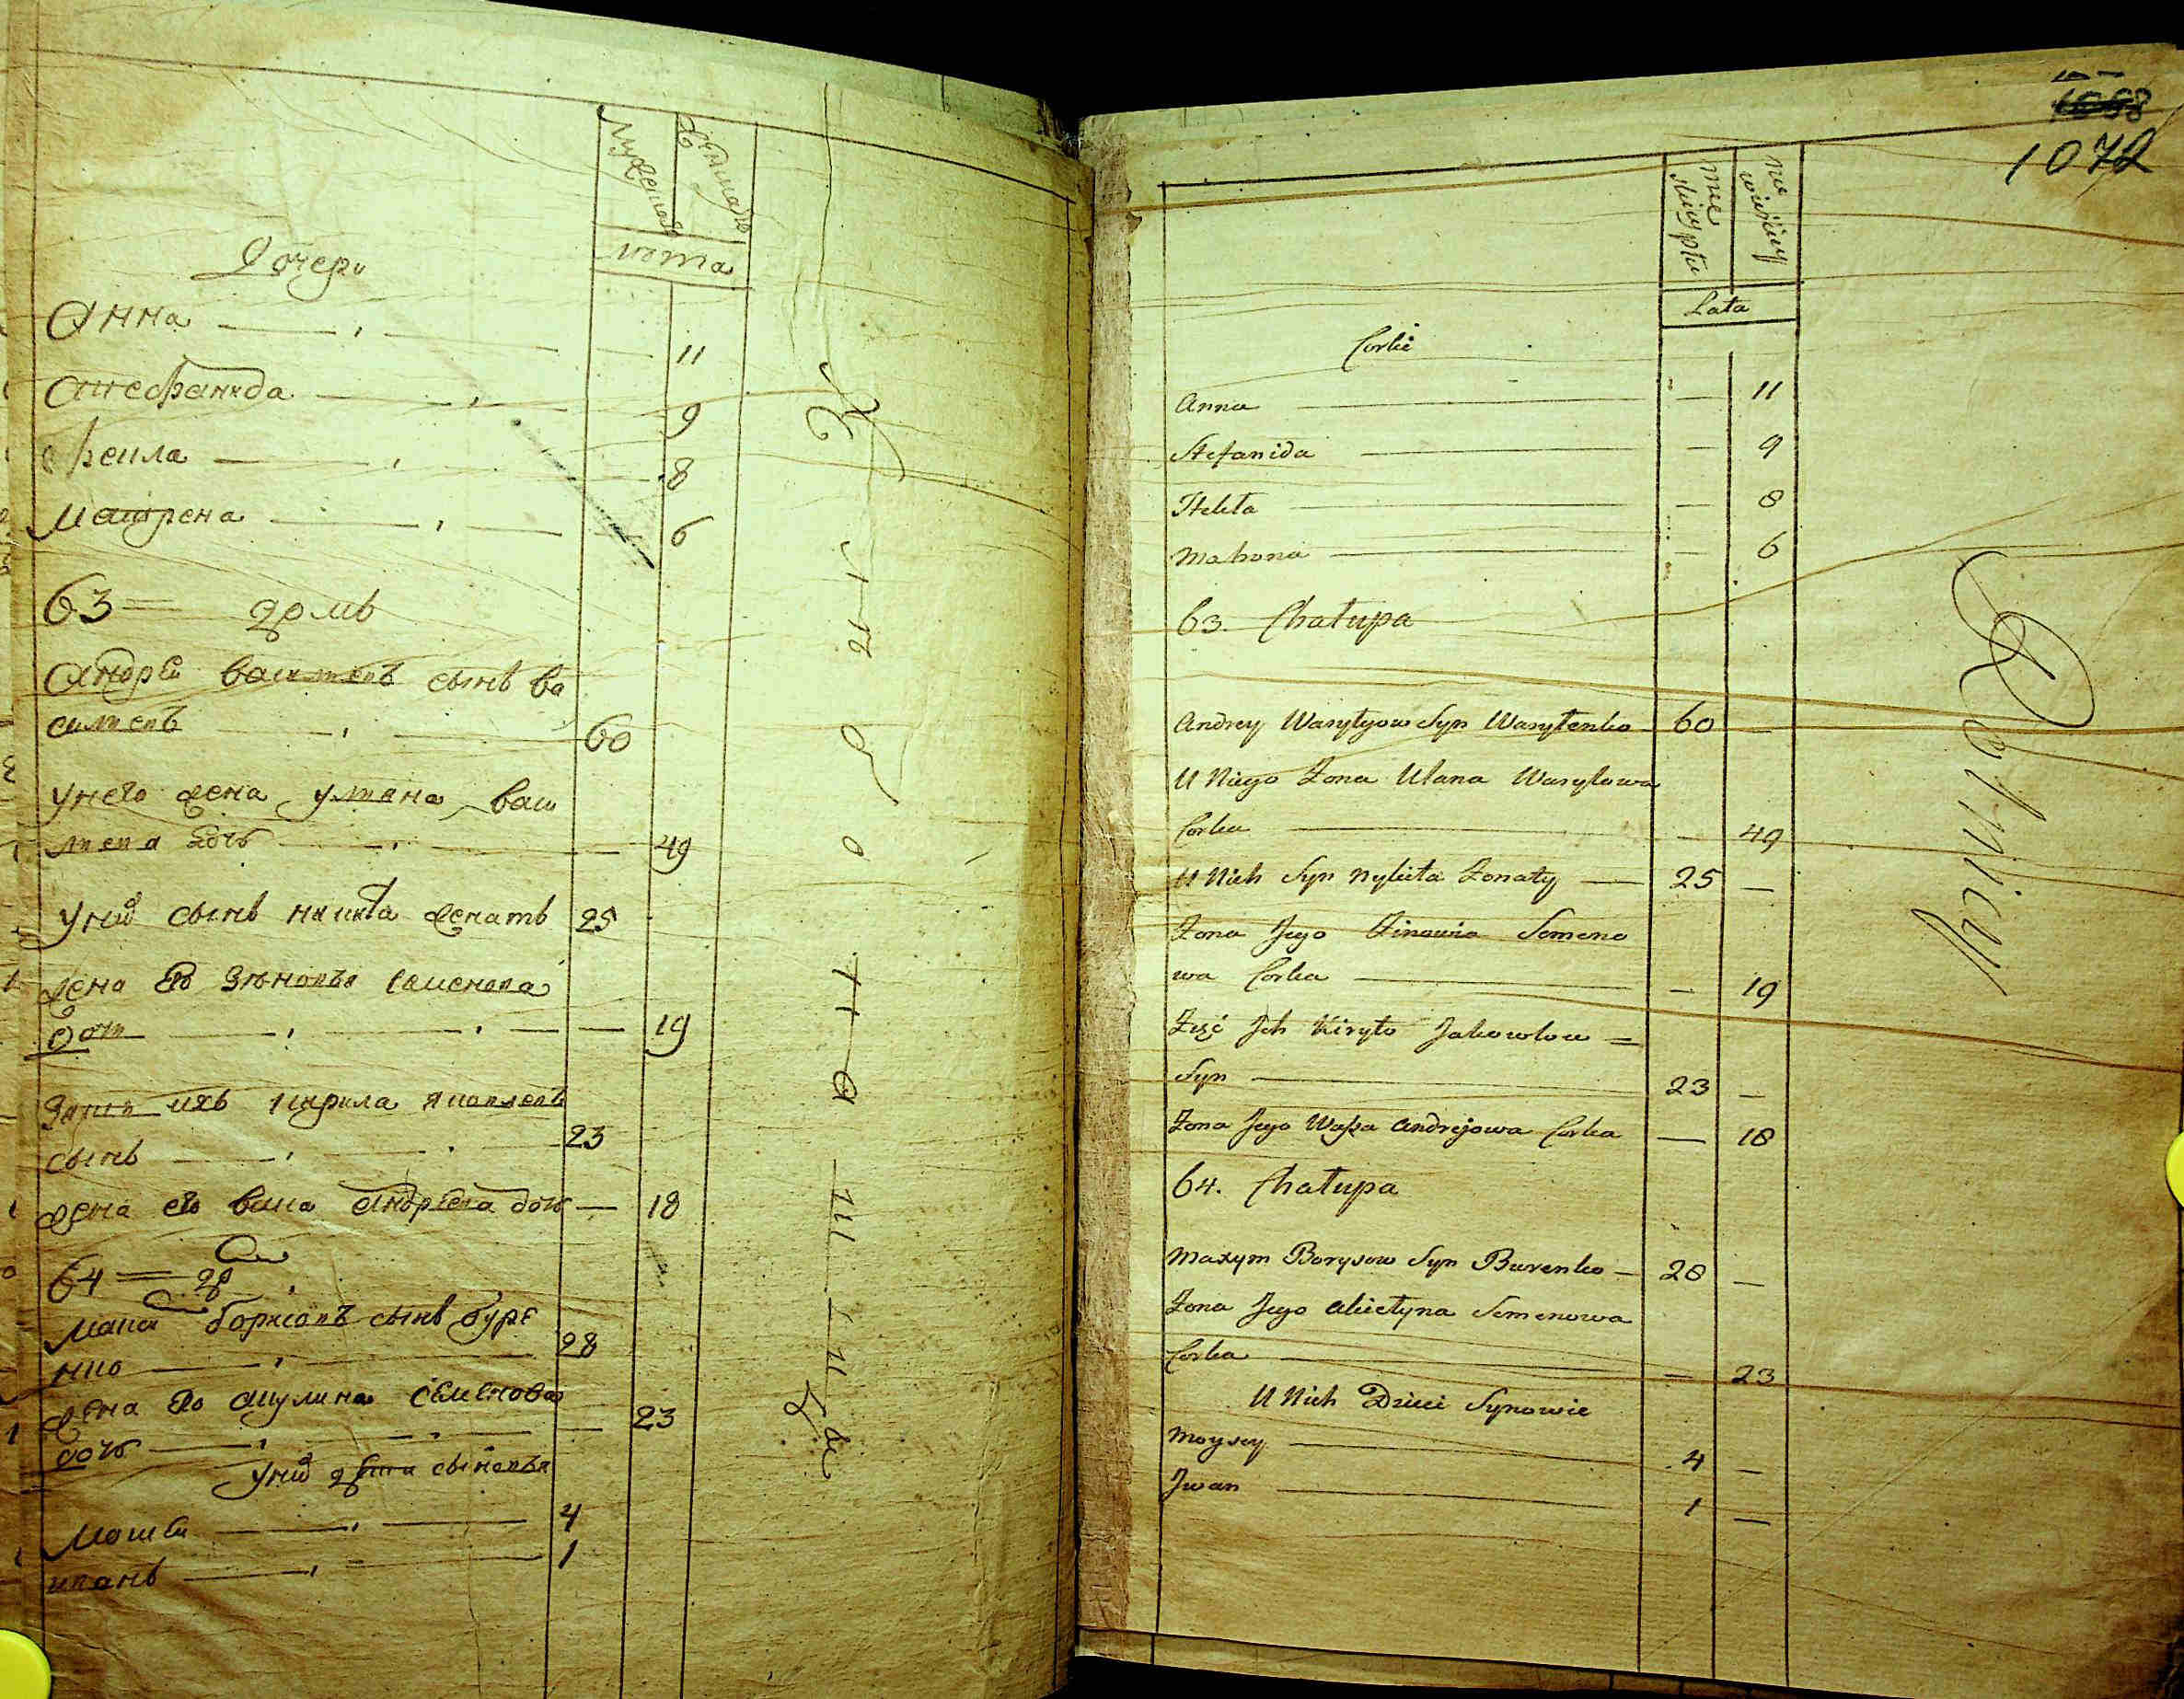 мужеска
женска
лета
Дочери
Анна 11
Стефанида 9
Фекла 8
Матрена 6
63 = домъ
Андрей василевъ сынъ ва
силевъ 60
унего жена уляна васи
лева дочь — 49
уних сынъ никита женатъ 25
жена его Зѣновъя Семенова
дочь — 19
Зять ихъ кирила яковлевъ
сынъ 23
жена его васа андреева дочь — 18
64 = до
Макси борисовъ сынъ буре
нко 28
жена его акулина семенова
дочь — 23
уних дети сыновья
Мойсей 4
иванъ 1
1072
męskiey płci
niewieściey
Lata
Corki
Anna — 11
Stefanida — 9
Tekla — 8
Matrona — 6
63. Chałupa
Andrey Wasylyow Syn Wasylenko 60 —
U Niego Zona Ulana Wasylowa
Corka — 49
U Nich Syn Nykita Zonaty 25 —
Zona Jego Zinowia Semeno
wa Corka — 19
Zięć Jch Kiryło Jakowlow =
Syn 23 —
Zona Jego Wassa Andrejowa Corka — 18
64. Chałupa
Maxym Borysow Syn Burenko 28 —
Zona Jego Akiełyna Semenowa
Corka — 23
U Nich Dzieci Synowie
Moysey 4 —
Jwan 1 —
Rolnicy